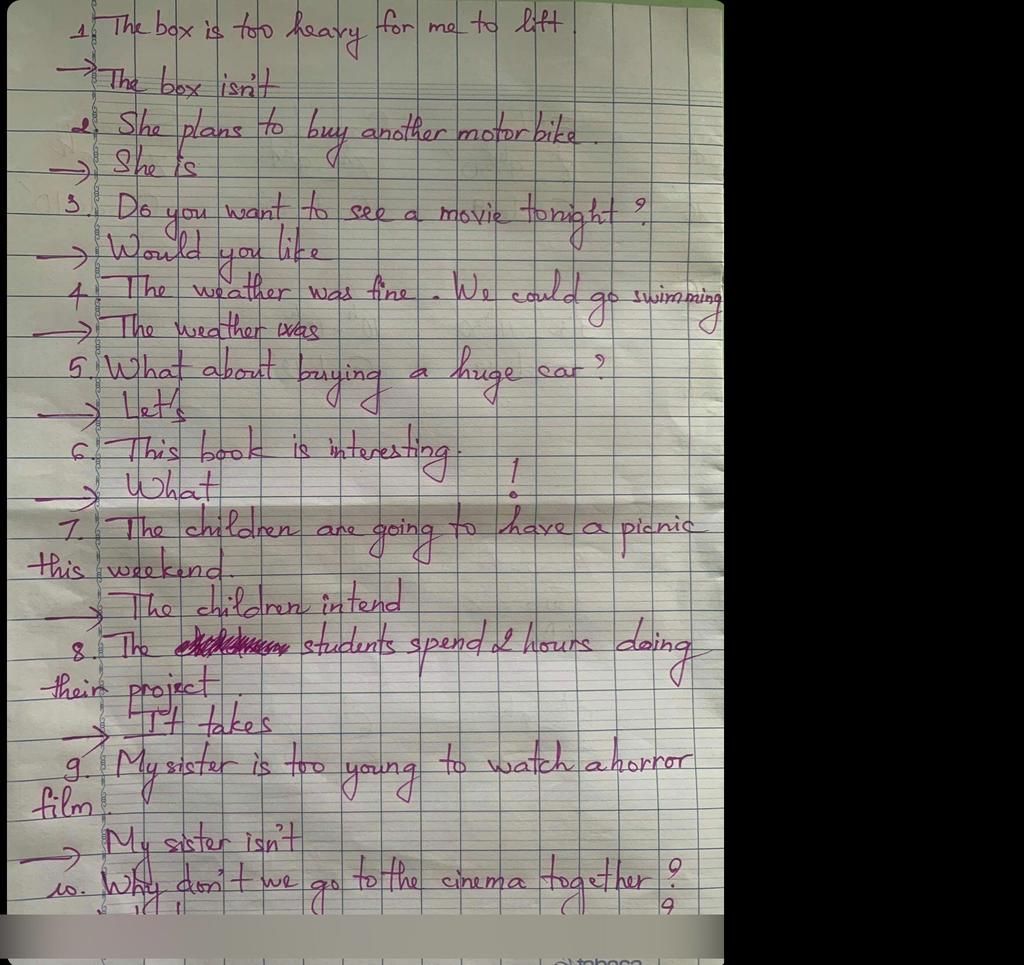 1. The box is too heavy for me to lift.
→ The box isn't
2. She plans to buy another motorbike.
→ She is
3. Do you want to see a movie tonight?
→ Would you like
4. The weather was fine. We could go swimming
→ The weather was
5. What about buying a huge car?
→ Let's
6. This book is interesting.
→ What !
7. The children are going to have a picnic
this weekend.
→ The children intend
8. The students spend 2 hours doing
their project.
→ It takes
9. My sister is too young to watch a horror
film.
→ My sister isn't
10. Why don't we go to the cinema together?
?